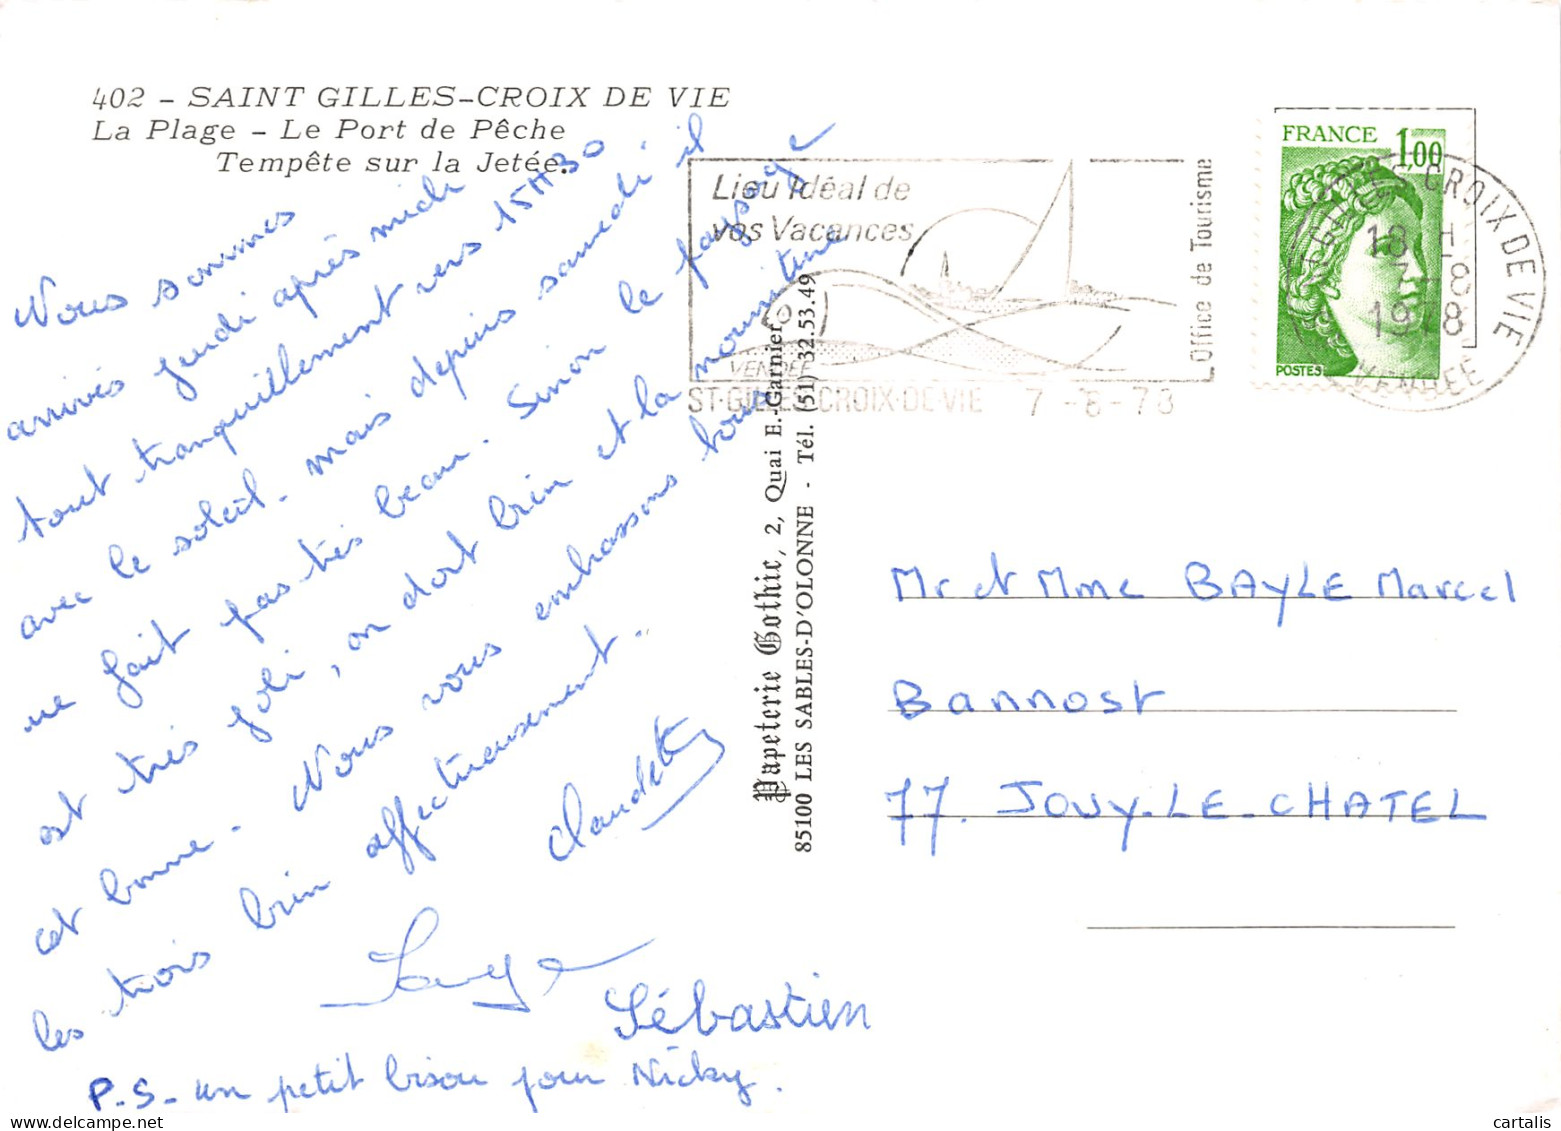 402 - SAINT GILLES-CROIX DE VIE
La Plage - Le Port de Pêche
Tempête sur la Jetée.
Nous sommes
arrivés jeudi après midi
tout tranquillement vers 15H30
avec le soleil - mais depuis samedi il
ne fait pas très beau. Sinon le paysage
est très joli, on dort bien et la nourriture
est bonne - Nous vous embrassons tous
les trois bien affectueusement..
Claudette
Serge
Sébastien
P.S- un petit bisou pour Nicky.
Lieu Idéal de
vos Vacances
VENDEE
Office de Tourisme
ST-GILLES-CROIX-DE-VIE 7 -8 -78
Papeterie Gothic, 2, Quai E.-Garnier
85100 LES SABLES-D'OLONNE - Tél. (51) 32.53.49
FRANCE 1,00
POSTES
CROIX DE VIE
18 H
7-8
1978
VENDEE
Mr et Mme BAYLE Marcel
Bannost
77. JOUY-LE-CHATEL
cartalis